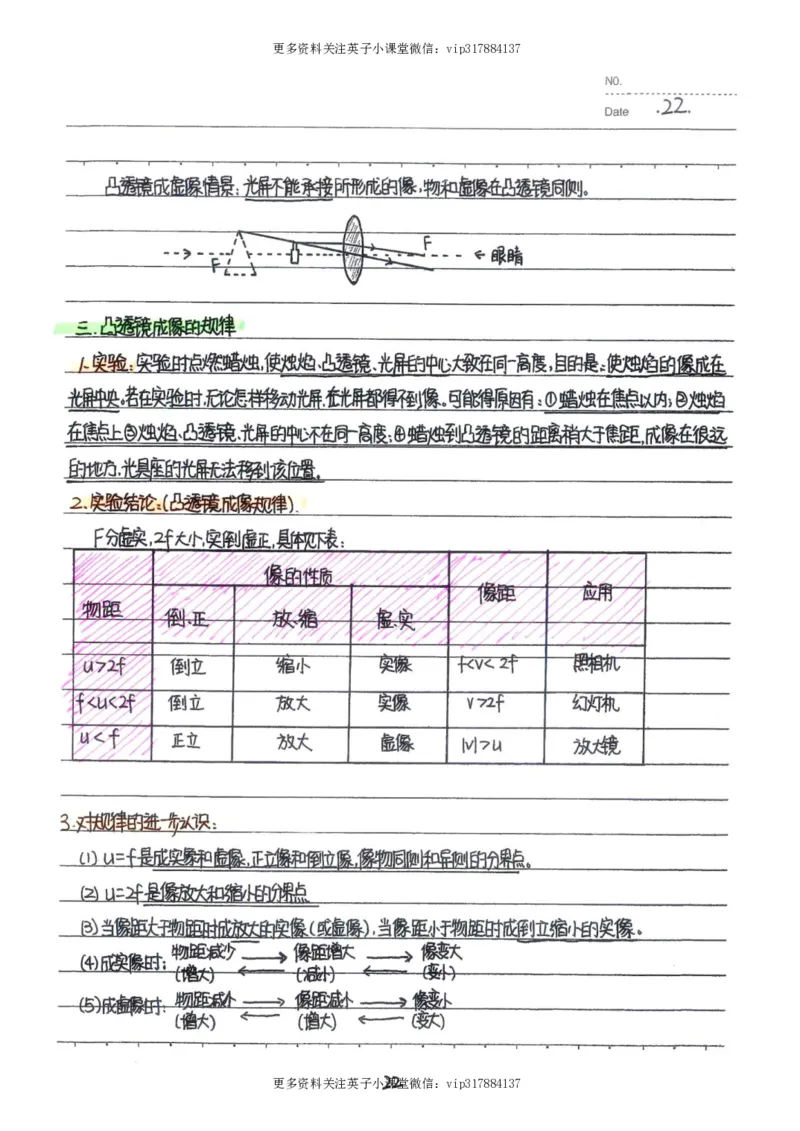 更多资料关注英子小课堂微信：vip317884137
NO.
Date .22.
凸透镜成虚像情景：光屏不能承接所形成的像，物和虚像在凸透镜同侧。
F
F
眼睛
三.凸透镜成像的规律
1.实验：实验时点燃蜡烛，使烛焰、凸透镜、光屏的中心大致在同一高度，目的是：使烛焰的像成在
光屏中央。若在实验时，无论怎样移动光屏，在光屏都得不到像。可能得原因有：①蜡烛在焦点以内；②烛焰
在焦点上③烛焰、凸透镜、光屏的中心不在同一高度；④蜡烛到凸透镜的距离稍大于焦距，成像在很远
的地方、光具座的光屏无法移到该位置。
2.实验结论：（凸透镜成像规律）.
F分虚实，2f大小，实倒虚正，具体见下表：
物距 像的性质 像距 应用
倒、正 放、缩 虚、实
u>2f 倒立 缩小 实像 f<v<2f 照相机
f<u<2f 倒立 放大 实像 v>2f 幻灯机
u<f 正立 放大 虚像 |v|>u 放大镜
3.对规律的进一步认识：
(1) u=f是成实像和虚像，正立像和倒立像，像物同侧和异侧的分界点。
(2) u=2f是像放大和缩小的分界点
(3)当像距大于物距时成放大的实像（或虚像），当像距小于物距时成倒立缩小的实像。
(4)成实像时：物距减少 → 像距增大 → 像变大
（增大） ← （减小） ← （变小）
(5)成虚像时：物距减小 → 像距减小 → 像变小
（增大） ← （增大） ← （变大）
更多资料关注英子小课堂微信：vip317884137
22